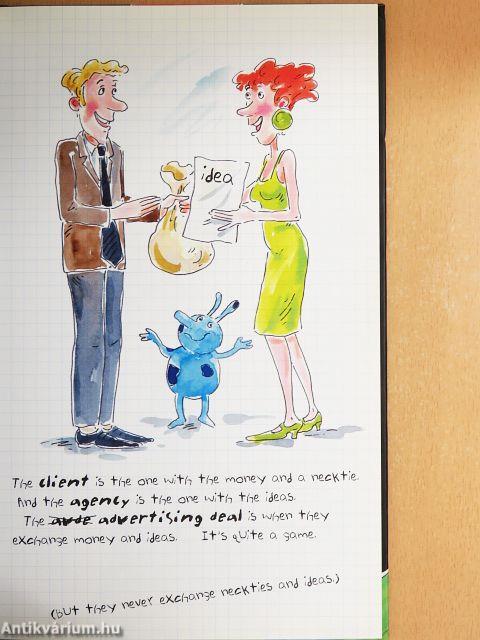 idea
The client is the one with the money and a necktie.
And the agency is the one with the ideas.
The avde advertising deal is when they
exchange money and ideas. It's quite a game.
(But they never exchange neckties and ideas.)
Antikvárium.hu